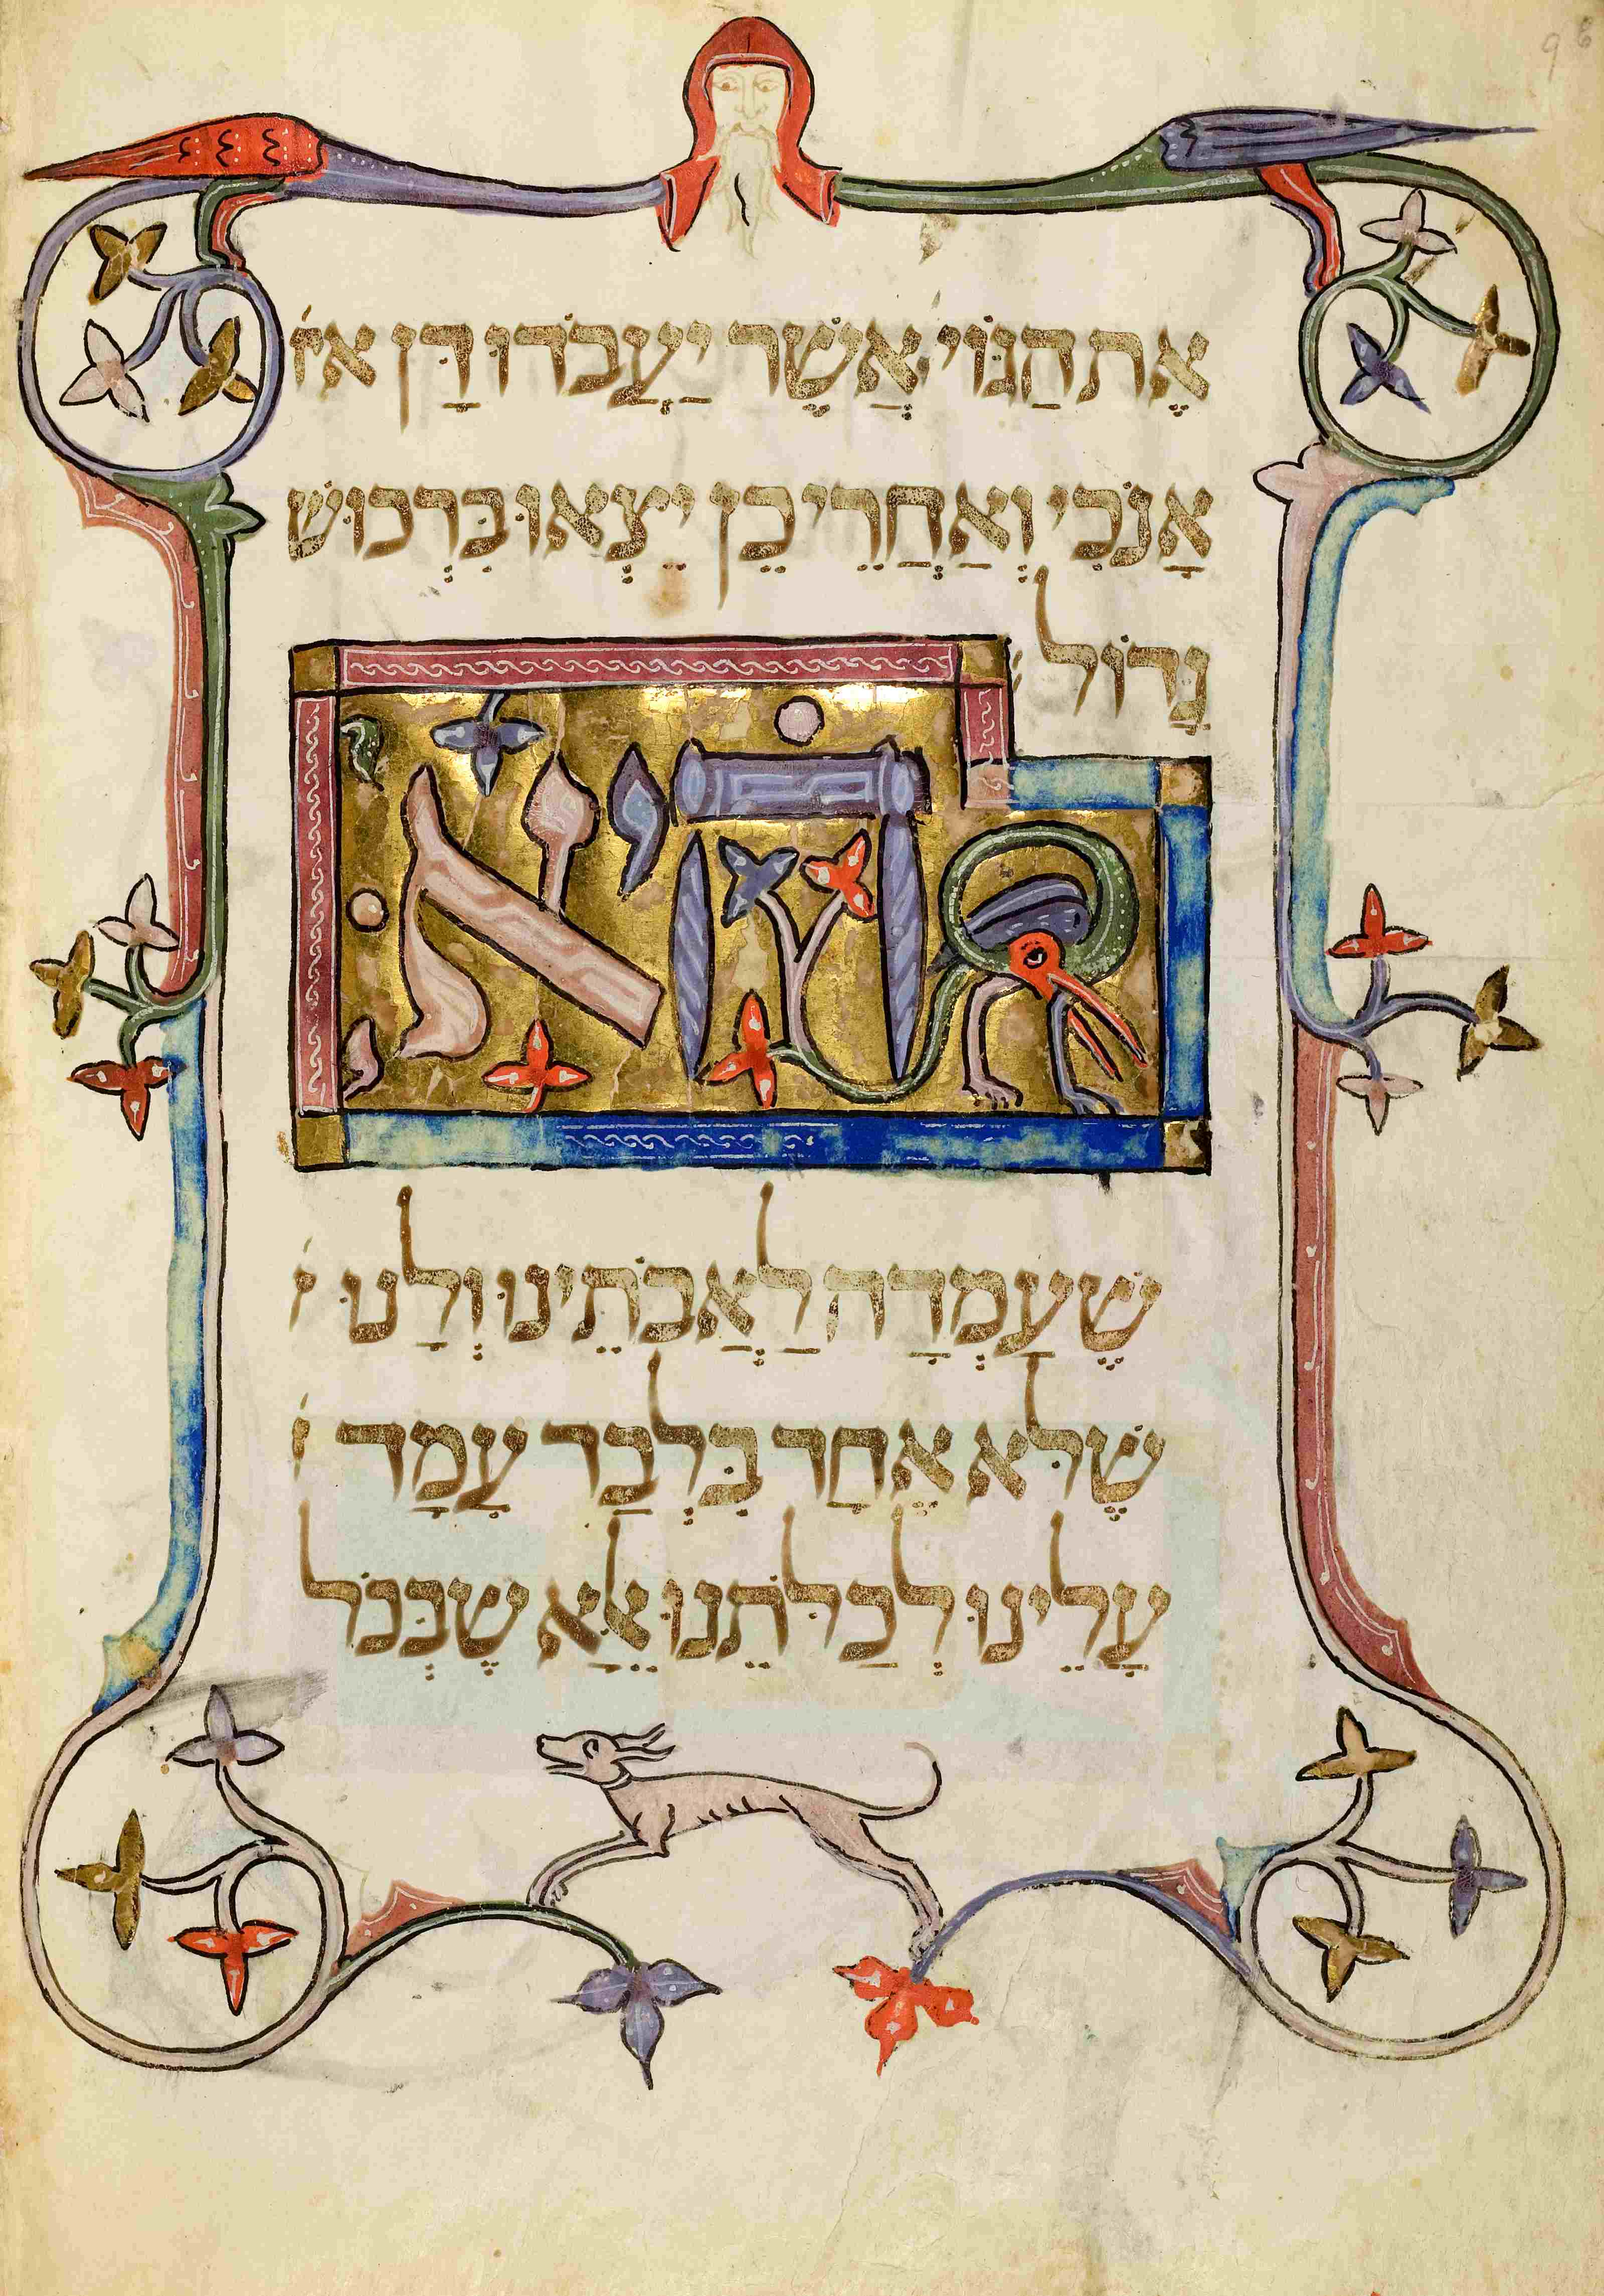 אֶת הַגּוֹי אֲשֶׁר יַעֲבֹדוּ דָּן א
אָנֹכִי וְאַחֲרֵי כֵן יֵצְאוּ בִּרְכוּשׁ
גָּדוֹל
והיא
שֶׁעָמְדָה לַאֲבֹתֵינוּ וְלָנוּ
שֶׁלֹּא אֶחָד בִּלְבַד עָמַד
עָלֵינוּ לְכַלֹּתֵנוּ אֶלָּא שֶׁבְּכֹל